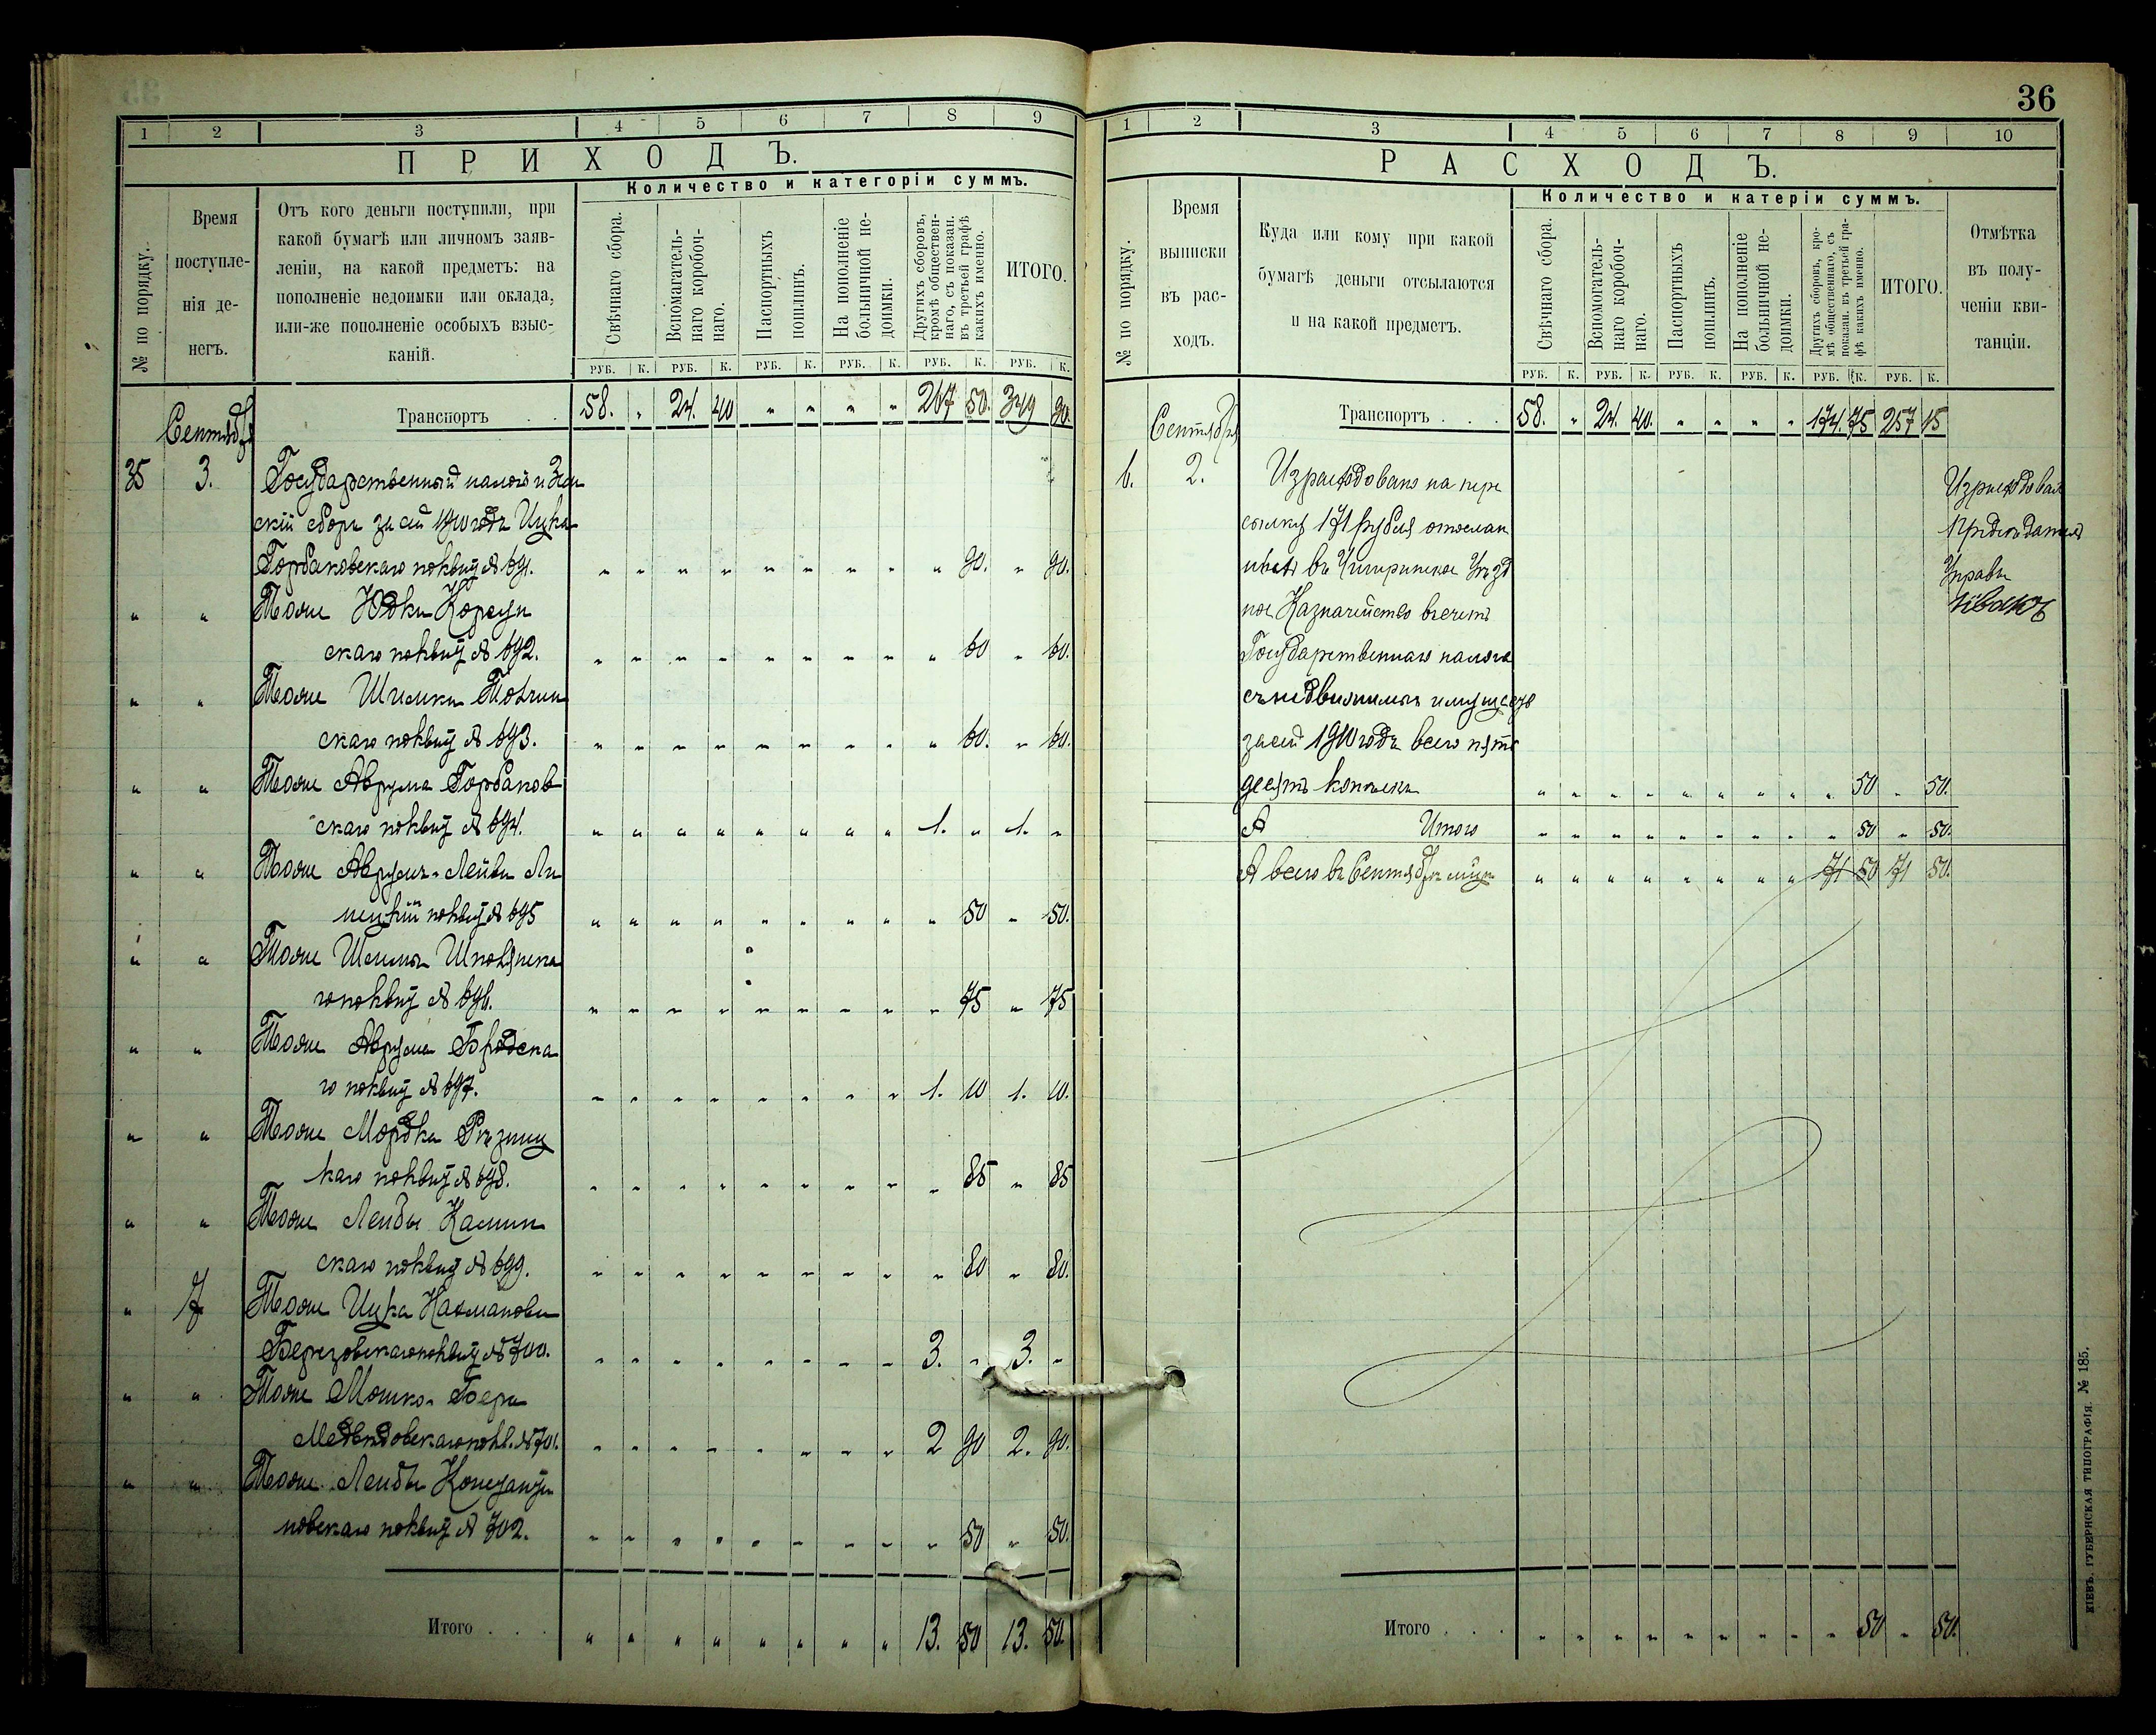 36
1 2 3 4 5 6 7 8 9
ПРИХОДЪ.
Количество и категоріи суммъ.
№ по порядку.
Время
поступле-
нія де-
негъ.
Отъ кого деньги поступили, при
какой бумагѣ или личномъ заяв-
леніи, на какой предметъ: на
пополненіе недоимки или оклада,
или-же пополненіе особыхъ взыс-
каній.
Свѣчнаго сбора.
Вспомагатель-
наго коробоч-
наго.
Паспортныхъ
пошлинъ.
На пополненіе
больничной не-
доимки.
Другихъ сборовъ,
кромѣ обществен-
наго, съ показан.
въ третьей графѣ
какихъ именно.
ИТОГО.
РУБ. К. РУБ. К. РУБ. К. РУБ. К. РУБ. К. РУБ. К.
Сентябрь
Транспортъ . . 58. „ 24. 40 „ „ „ „ 267 50. 349 90.
35 3. Государственный налогъ и Зем
скій сборъ за сей 1910 годъ Ицка
Горбаковскаго по квит № 691. „ „ „ „ „ „ „ „ „ 90. „ 90.
„ „ Тоже Юдки Корсун
скаго по квит № 692. „ „ „ „ „ „ „ „ „ 60 „ 60.
„ „ Тоже Шимки
скаго по квит № 693. „ „ „ „ „ „ „ „ „ 60. „ 60.
„ „ Тоже Аврума Горбаков
скаго по квит № 694. „ „ „ „ „ „ „ „ 1. „ 1. „
„ „ Тоже Аврумъ-Лейви Ли
нецкій по квит № 695 „ „ „ „ „ „ „ „ „ 50 „ 50.
„ „ Тоже Шполянска
го по квит № 696. „ „ „ „ „ „ „ „ „ 75 „ 75
„ „ Тоже Аврума Бродска
го по квит № 697. „ „ „ „ „ „ „ „ 1. 10 1. 10.
„ „ Тоже Мордка Рѣзниц
каго по квит № 698. „ „ „ „ „ „ „ „ „ 85 „ 85
„ „ Тоже Лейбы Камин
скаго по квит № 699. „ „ „ „ „ „ „ „ „ 80 „ 80.
„ 7 Тоже Ицка Нахманови
Березовскаго по квит № 700. „ „ „ „ „ „ „ „ 3. „ 3. „
„ „ Тоже Мошко-Бера
Медвѣдовскаго по кв. № 701. „ „ „ „ „ „ „ „ 2 90 2. 90.
„ „ Тоже Лейбы
новскаго по квит № 702. „ „ „ „ „ „ „ „ „ 50 „ 50.
Итого . . . „ „ „ „ „ „ „ „ 13. 50 13. 50.
1 2 3 4 5 6 7 8 9 10
РАСХОДЪ.
Количество и катеріи суммъ.
№ по порядку.
Время
выписки
въ рас-
ходъ.
Куда или кому при какой
бумагѣ деньги отсылаются
и на какой предметъ.
Свѣчнаго сбора.
Вспомогатель-
наго коробоч-
наго.
Паспортныхъ
пошлинъ.
На пополненіе
больничной не-
доимки.
Другихъ сборовъ, кро-
мѣ общественнаго, съ
показан. въ третьей гра-
фѣ какихъ именно.
ИТОГО.
Отмѣтка
въ полу-
ченіи кви-
танціи.
РУБ. К. РУБ. К. РУБ. К. РУБ. К. РУБ. К. РУБ. К.
Сентябрь
Транспортъ . . . 58. „ 24. 40. „ „ „ „ 174. 75 257 15
6. 2. Израсходовано на пере
сылку 171 рубля отослан
ныхъ въ Чигиринское Уѣзд
ное Казначейство въ счетъ
Государственнаго налога
съ недвижимыхъ имуществ
за сей 1910 годъ всего пять
десятъ копѣекъ „ „ „ „ „ „ „ „ „ 50 „ 50.
Израсходовалъ
Предсѣдатель
Управы
А Итого „ „ „ „ „ „ „ „ „ 50 „ 50.
А всего въ Сентябрѣ мцѣ „ „ „ „ „ „ „ „ 71 50 71 50.
Итого . . . „ „ „ „ „ „ „ „ „ 50 „ 50.
КІЕВЪ. ГУБЕРНСКАЯ ТИПОГРАФІЯ. № 185.